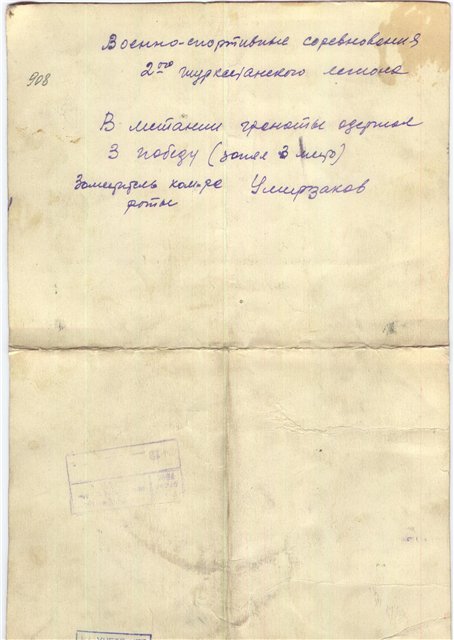 Военно-спортивные соревнования
2ого туркестанского легиона
908
В метании гранаты одержал
3 победу (занял 3 место)
Заместитель ком-ра Умирзаков
роты